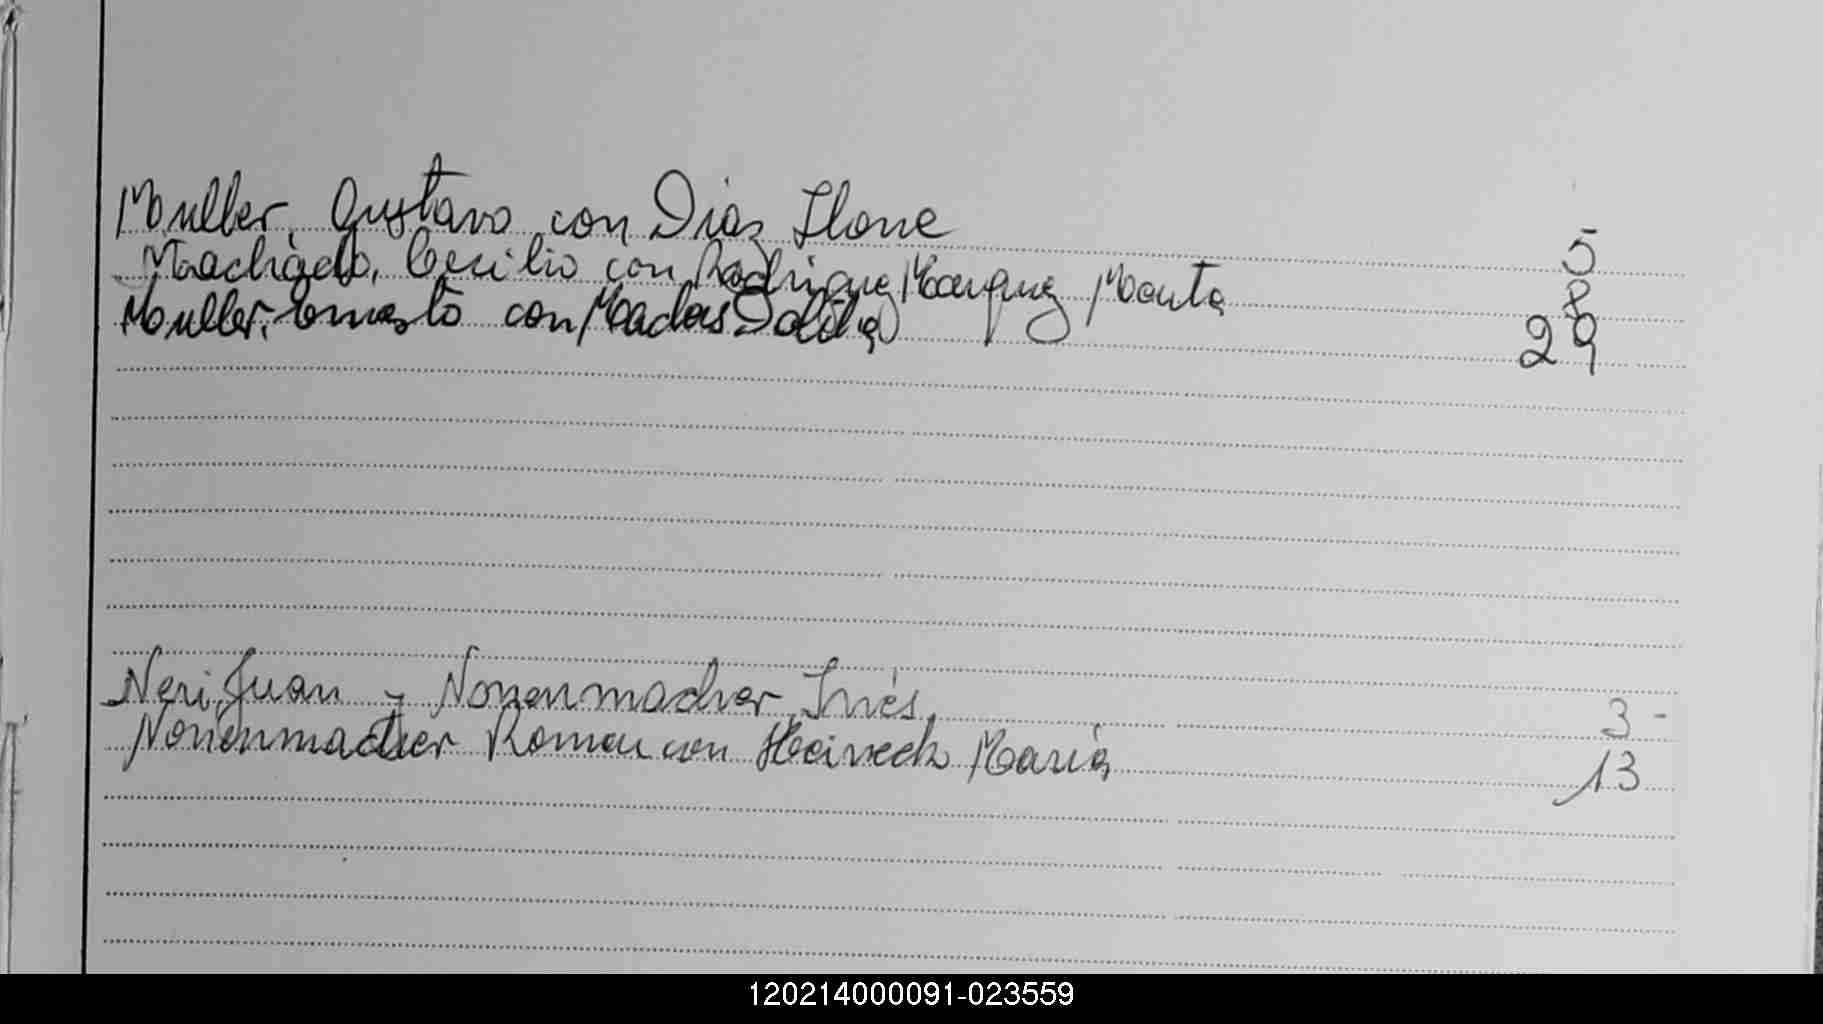 Muller, Gustavo con Dias Ilone 5
Machado, Cecilio con Rodrigue Marquez Marta 8
Muller, Ernesto con 29
Neri, Juan y Nonenmacher, Inés, 3 -
Nonenmacher Roman con Heineck Maria 13
120214000091-023559